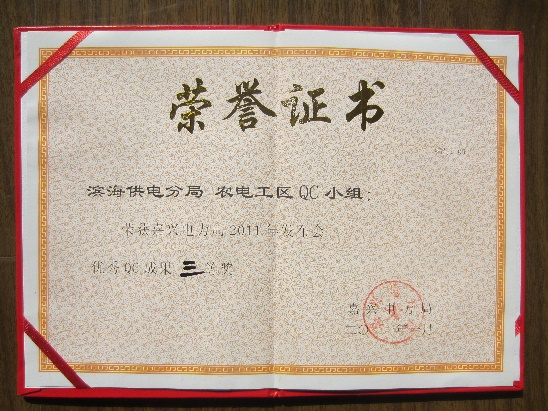 荣誉证书
滨海供电分局 农电工区 QC 小组：
荣获嘉兴电力局2011年发布会
优秀QC成果 三 等奖
嘉兴电力局
二〇 年 月